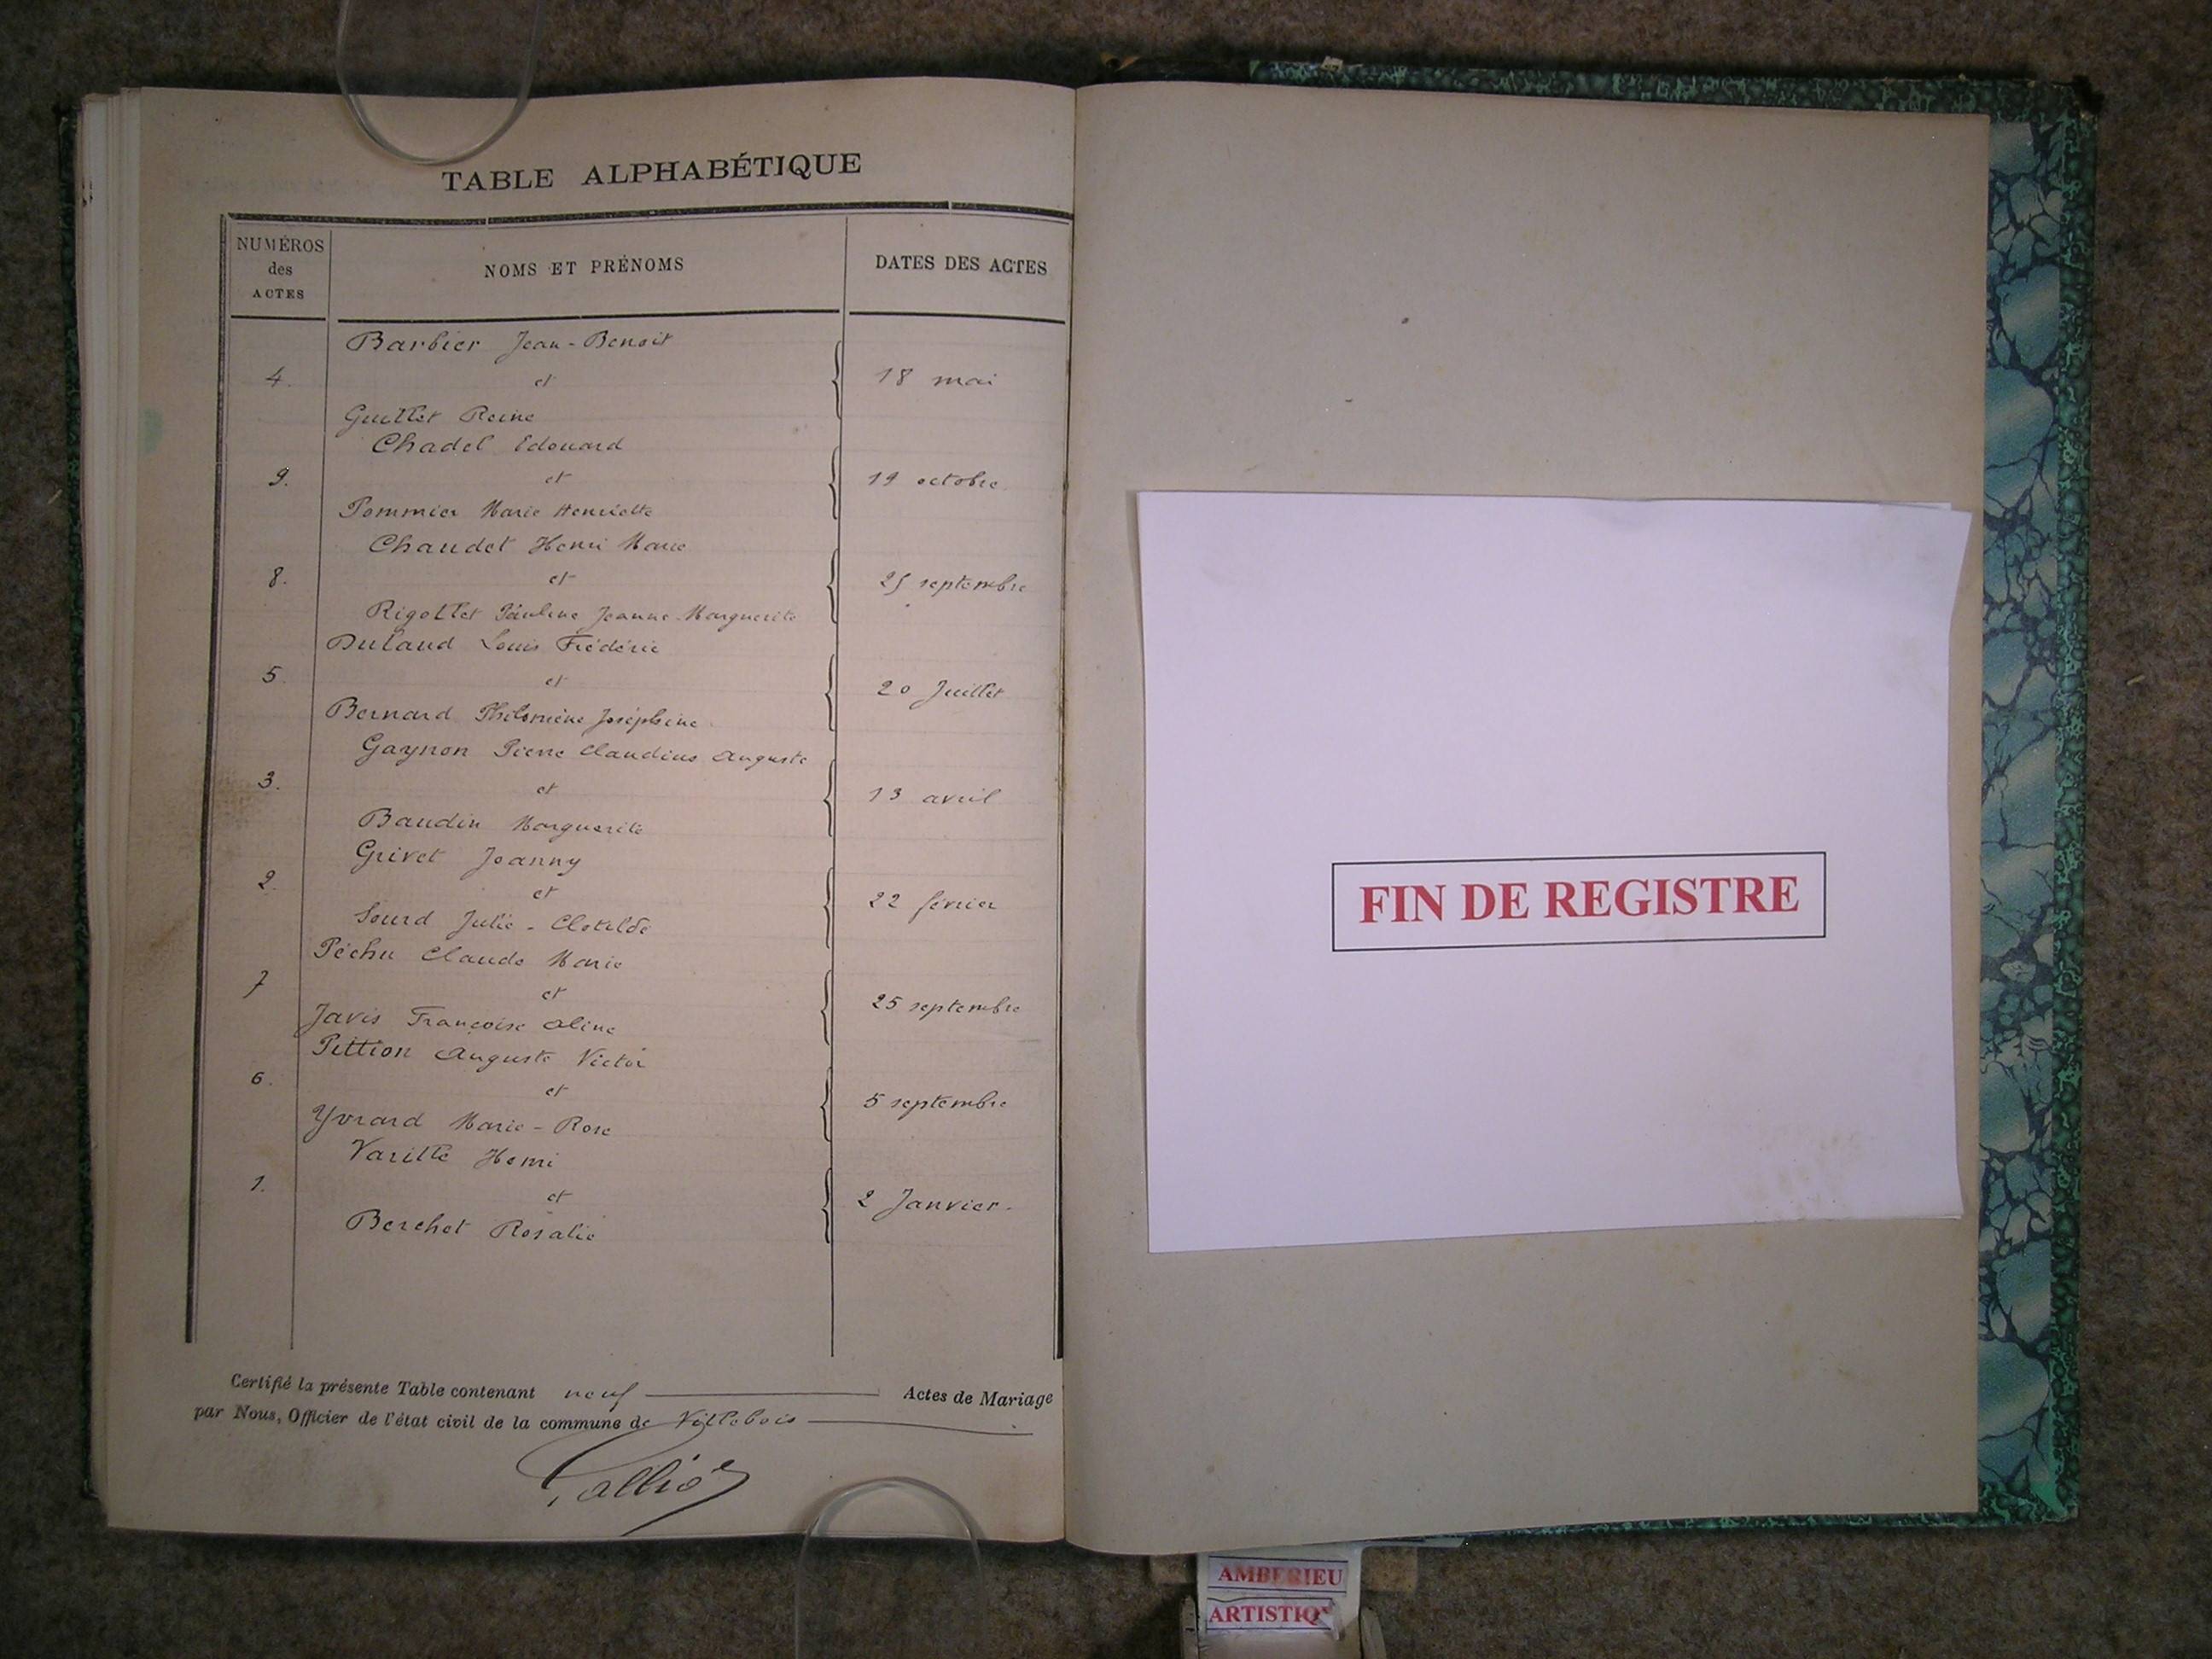 TABLE ALPHABÉTIQUE
NUMÉROS des ACTES
NOMS ET PRÉNOMS
DATES DES ACTES
Barbier Jean-Benoit
4. et 18 mai
Guillet Reine
Chadel Edouard
9. et 19 octobre
Pommier Marie Henriette
Chaudet Henri Marie
8. et 25 septembre
Rigollet Pauline Jeanne-Marguerite
Dulaud Louis Frédéric
5. et 20 Juillet
Bernard Philomène Joséphine
Gaynon Pierre Claudius Auguste
3. et 13 avril
Baudin Marguerite
Grivet Joanny
2. et 22 février
Sourd Julie-Clotilde
Péchu Claude Marie
7 et 25 septembre
Javis Françoise Aline
Pittion Auguste Victor
6. et 5 septembre
Yvrard Marie-Rose
Varille Henri
1. et 2 Janvier.
Berchet Rosalie
Certifié la présente Table contenant neuf Actes de Mariage
par Nous, Officier de l'état civil de la commune de Villebois
FIN DE REGISTRE
AMBERIEU
ARTISTIQ